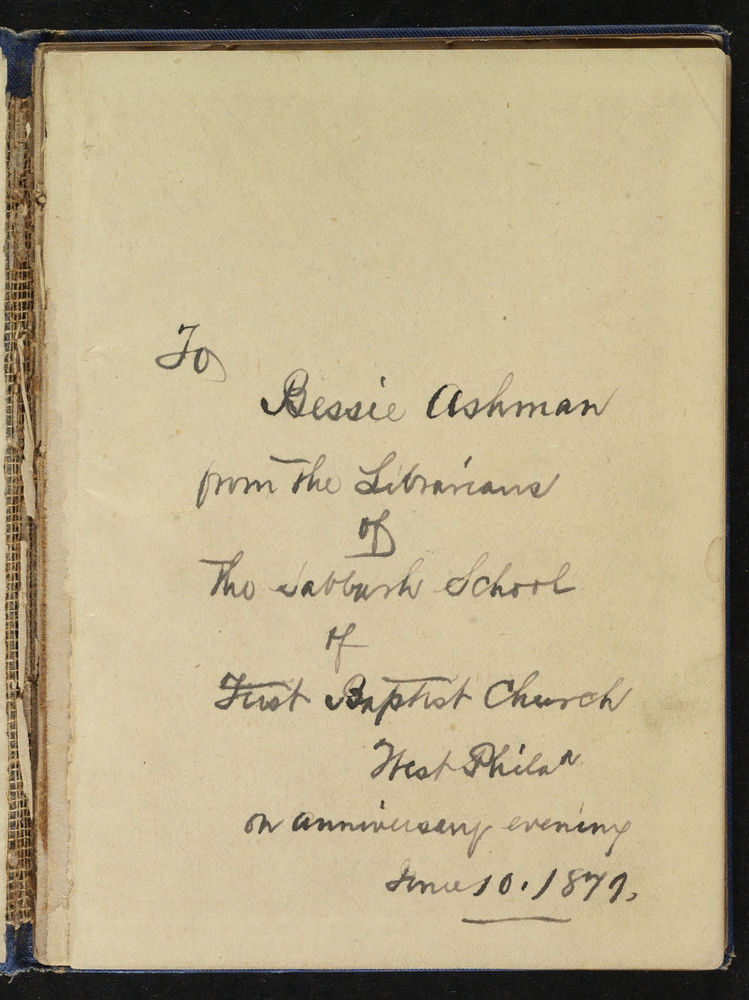 To
Bessie Ashman
from the Librarians
of
The Sabbath School
of
First Baptist Church
West Philaᵃ
on anniversary evening
June 10. 1879.